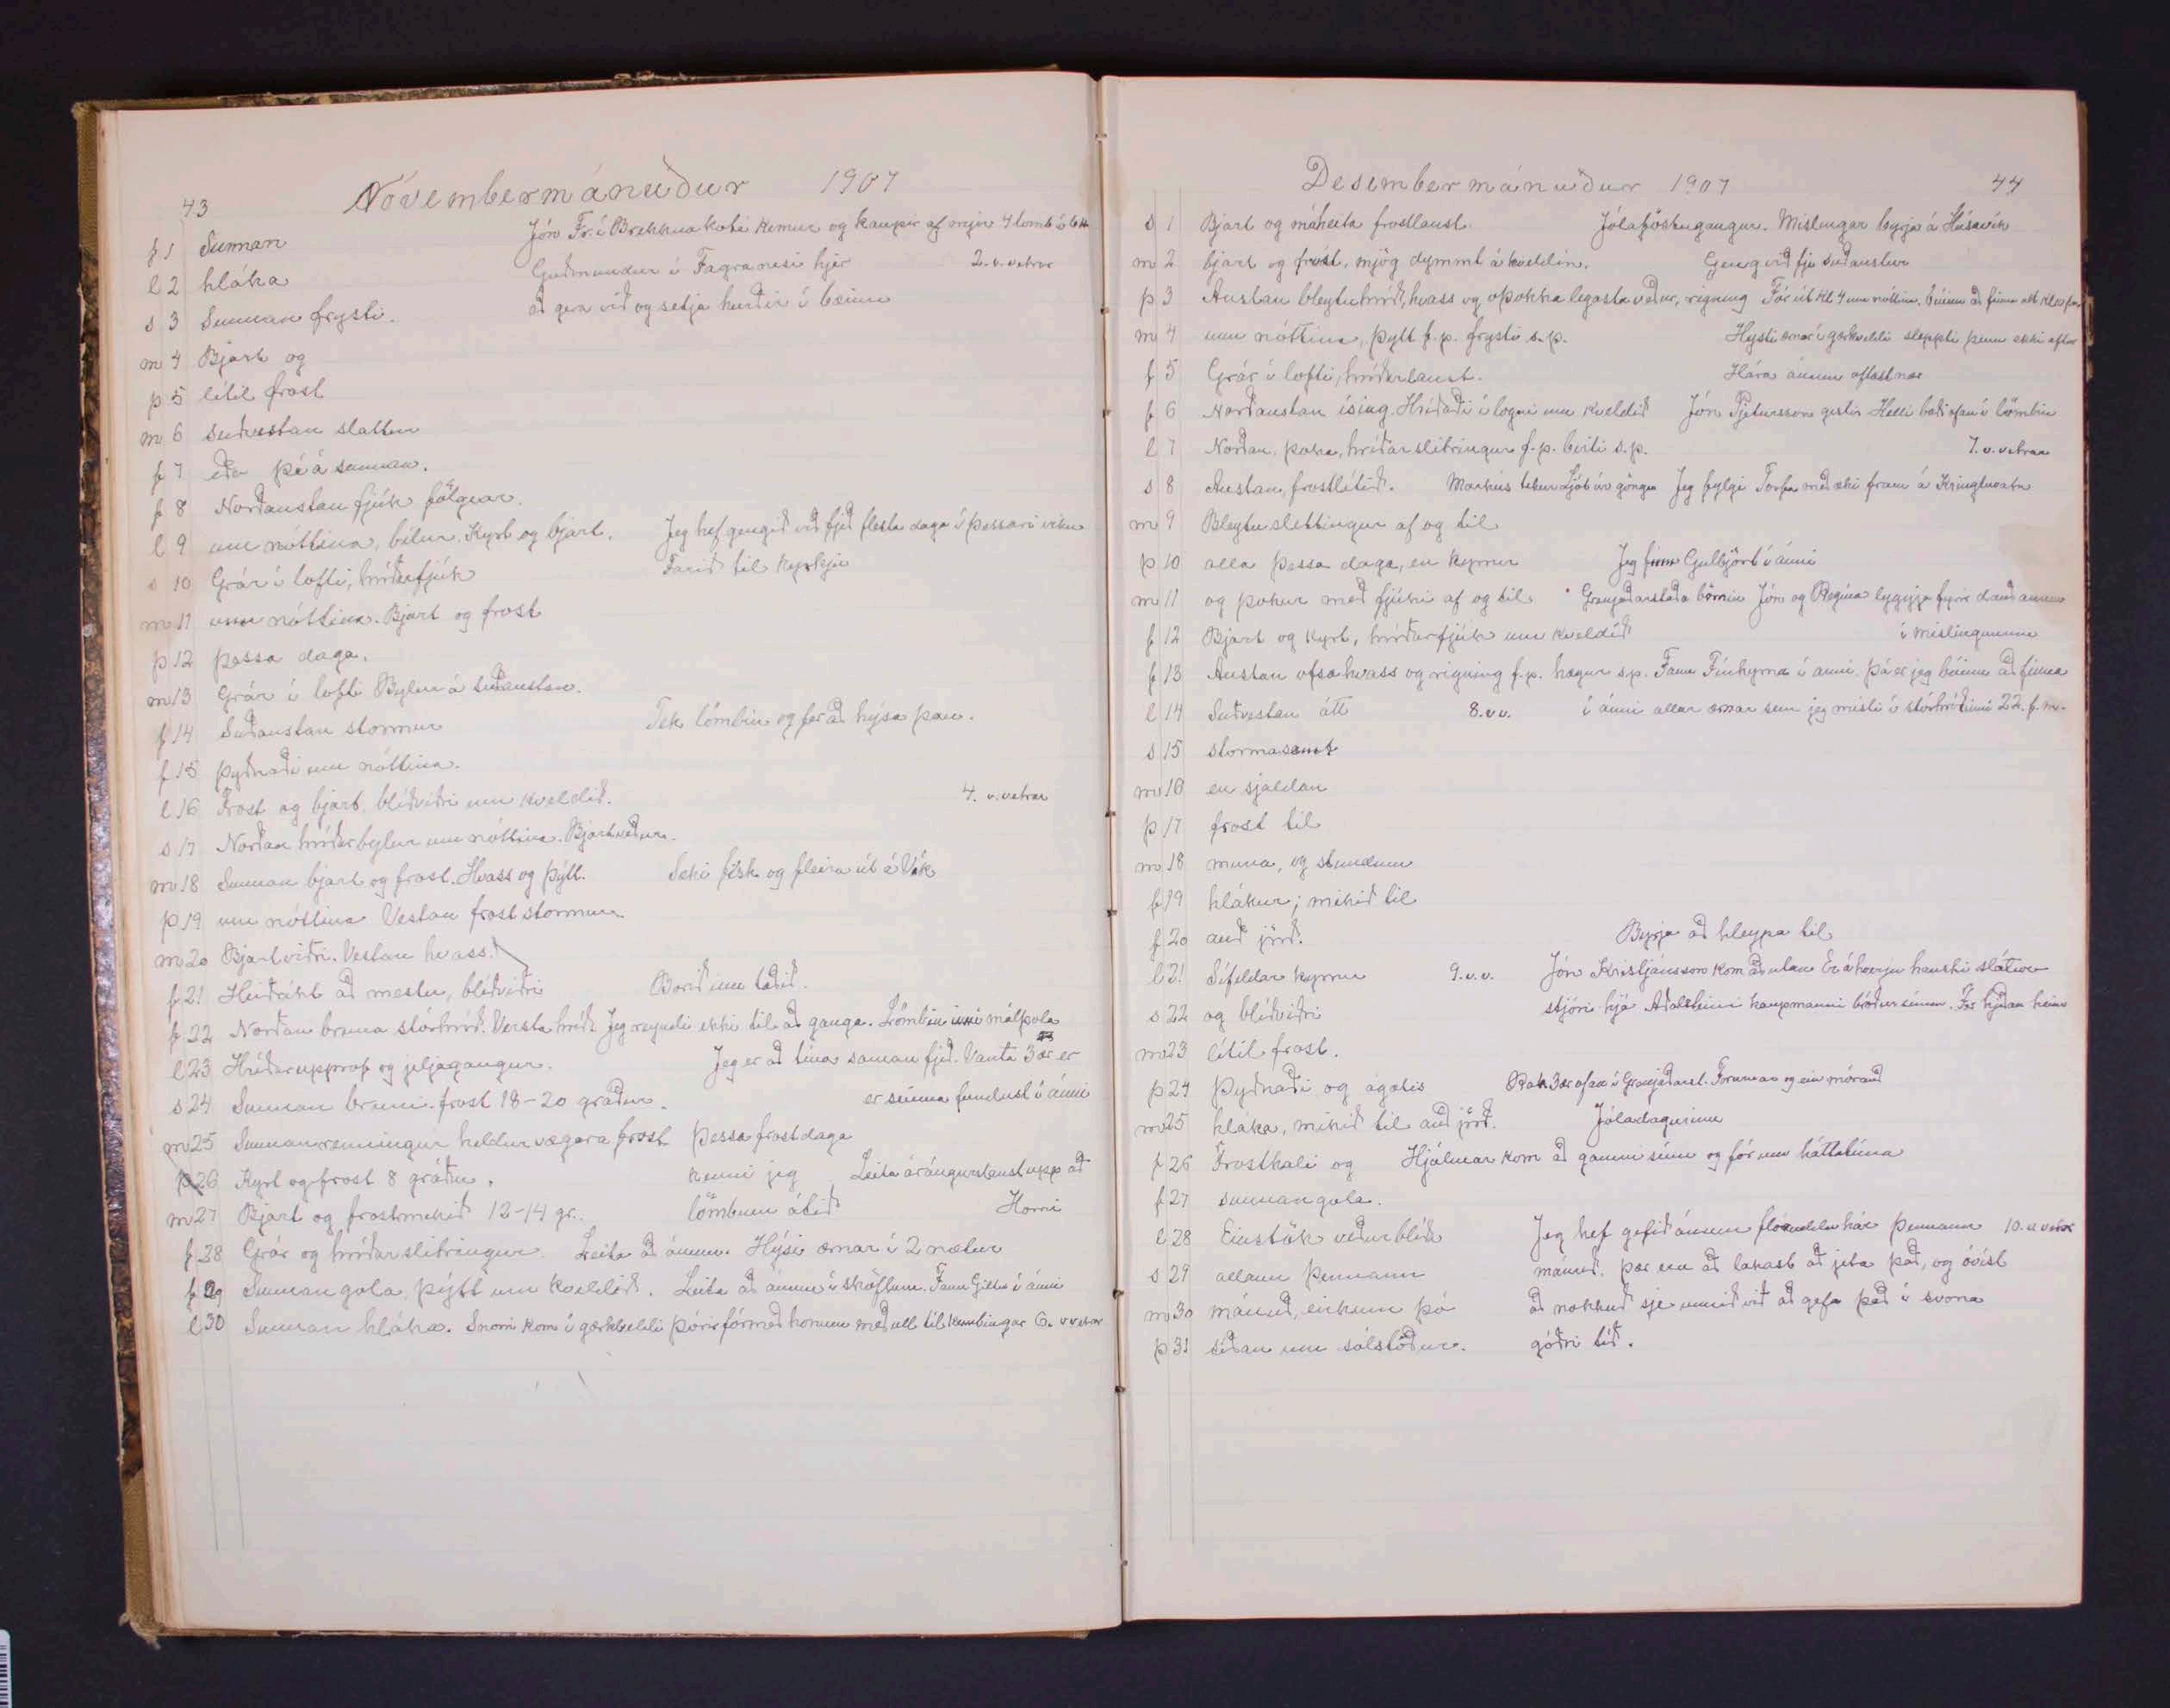 43 Nóvembermánuður 1907
f 1 Sunnan Jón Fr. í Brekknakoti kemur og kaupir af mjer 4 lömb
l 2 hláka Guðmundur í Fagranesi hjer 2. v. vetrar
s 3 Sunnan frysti. að gera við og setja hurðir í bæinn
m 4 Bjart og
þ 5 lítil frost
m 6 suðvestan slattur
f 7 eða þá á sunnan.
f 8 Norðaustan fjúk fölgvar.
l 9 um nóttina, bilur. Kyrt og bjart. Jeg hef gengið við fjeð flesta daga í þessari viku
s 10 Grár í lofti, hríðarfjúk Farið til kyrkju
m 11 um nóttina. Bjart og frost
þ 12 þessa daga.
m 13 Grár í lofti Bylur á suðaustan.
f 14 Suðaustan stormur Tek lömbin og fer að hýsa þau.
f 15 þyðnaði um nóttina.
l 16 Frost og bjart, blíðviðri um kveldið. 4. v. vetrar
s 17 Norðan hríðarbylur um nóttina. Bjartveður.
m 18 Sunnan bjart og frost. Hvass og þýtt. Seki fisk og fleira út á Vík
þ 19 um nóttina Vestan froststormur.
m 20 Bjartviðri. Vestan hvass.
f 21 Heiðríkt að mestu, blíðviðri Borið inn taðið.
f 22 Norðan bruna stórhríð. Versta hríð. Jeg reyndi ekki til að ganga. Lömbin inni málþola
l 23 Hríðarupprof og jeljagangur. Jeg er að tína saman fjeð. Vanta 3 ær er
s 24 Sunnan bruni. frost 18-20 gráður. er seinna fundust í ánni
m 25 Sunnanrenningur heldur vægara frost þessa frostdaga
þ 26 Kyrt og frost 8 gráður. kenni jeg Leita árángurslaust upp að
m 27 Bjart og frostmikið 12-14 gr. lömbum átið Horni
f 28 Grár og hríðarslitringur Leita að ánum. Hýsi ærnar í 2 nætur
f 29 Sunnangola, þýtt um kveldið. Leita að ánum í sköflum. Fann í ánni
l 30 Sunnan hláka. Snorri kom í gærkveldi Þórir fór með honum með ull til kembingar 6. v vetrar
Desembermánuður 1907 44
s 1 Bjart og máheita frostlaust. Jólaföstugangur. Mislingar byrja á Húsavík
m 2 bjart og frost, mjög dymmt á kveldin. Geng við fje suðaustur
þ 3 Austan bleytuhríð, hvass og óþokkalegasta veður, rigning Fór út kl 4 um nóttina. búinn að finna alt kl
m 4 um nóttina, þytt f.p. frysti s.p. Hysti ærnar í gærkveldi sleppti þeim ekki aftur
f 5 Grár í lofti, hríðarlaust. Hára ánum oftast nær
f 6 Norðaustan ísing. Hríðaði í logni um kveldið Jón Pjetursson gestir Helti baði ofaní lömbin
l 7 Norðan, þoka, hríðarslitringur f.p. birti s.p. 7. v. vetrar
s 8 Austan, frostlítið. Markús tekur Ljót úr göngu Jeg fylgi Torfa með æki fram á Kringluvatn
m 9 Bleytuslettingur af og til
þ 10 alla þessa daga, en kyrrur Jeg finn Gulbjört í ánni
m 11 og þokur með fjúki af og til Grenjaðarstaða börnin Jón og Regína lyggja fyrir dauðanum
f 12 Bjart og kyrt, hríðarfjúk um kveldið í mislingunum
f 13 Austan ofsahvass og rigning f.p. hægur s.p. Fann Fínhyrnu í ánni þá er jeg búinn að finna
l 14 Suðvestan átt 8. v v. í ánni allar ærnar sem jeg misti í stórhríðinni 22. f. m.
s 15 stormasamt
m 16 en sjaldan
þ 17 frost til
m 18 muna, og stundum
f 19 hlákur; mikið til
f 20 auð jörð. Byrja að hleypa til
l 21 Sífeldar kyrrur 9. v. v. Jón Kristjánsson kom að utan Er á hverju hausti slátur
s 22 og blíðviðri stjóri hjá Aðalsteini kaupmanni bróður sínum. Fór hjeðan heim
m 23 lítil frost.
þ 24 Þyðnaði og ágætis Rak 3 ær ofan í Grenjaðarst. Forumar og ein mórauð
m 25 hláka, mikið til auð jörð. Jóladagurinn
f 26 Frostkali og Hjálmar kom að gamni sínu og fór um háttatíma
f 27 sunnangola.
l 28 Einstök veðurblíða Jeg hef gefið ánum hár þennann 10. v vetrar
s 29 allann þennann mánuð. þær eru að lakast að jeta það, og óvíst
m 30 mánuð, einkum þó að nokkuð sje unnið við að gefa það í svona
þ 31 síðan um sólstöður. góðri tíð.